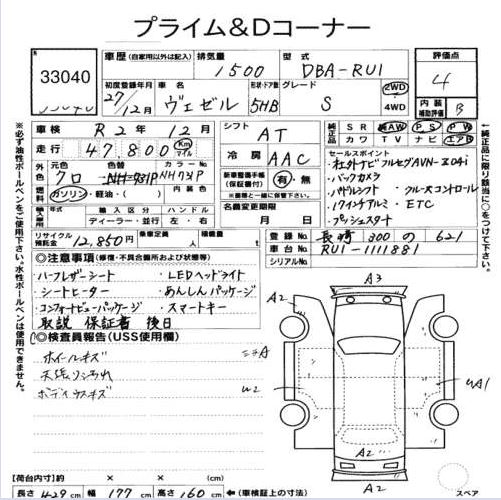 プライム&Dコーナー
33040
車歴 (自家用以外は記入) 排気量 1500 型式 DBA-RU1 評価点 4
初度登録年月 27/12月 車名 ヴェゼル 形状・ドア数 5HB グレード S 2WD 4WD 内装補助評価 B
車検 R2年12月 シフト AT 純正品 SR AW PS PW
走行 47,800 Km マイル 冷房 AAC カワ TV ナビ エアB
外装色 クロ カラーNo NH731P
セールスポイント
・社外ナビ フルセグ AVN-Z04i
・バックカメラ
・パドルシフト ・クルーズコントロール
・17インチアルミ ・ETC
・プッシュスタート
燃料 ガソリン・軽油・( )
新車整備手帳 (保証書付) 有・無
輸入区分 ハンドル
ディーラー・並行 左・右
名義変更期限 月 日
リサイクル預託金 12,850円 乗車定員 人 積載量
登録No 長崎 300 の 621
車台No RU1-1111881
シリアルNo
◎注意事項 (修復・不具合箇所および状態等)
・ハーフレザーシート ・LEDヘッドライト
・シートヒーター ・あんしんパッケージ
・コンフォートビューパッケージ ・スマートキー
取説 保証書 後日
◎検査員報告(USS使用欄)
ホイールキズ
天張リシ汚れ
ボディウスキズ
A3
A2
A2
A
W2
UA1
A2
A2
【荷台内寸】約 × × (cm)
長さ 429 cm 幅 177 cm 高さ 160 cm (車検証上の寸法) スペア
※必ず油性ボールペンをご使用下さい。水性ボールペンは使用できません。